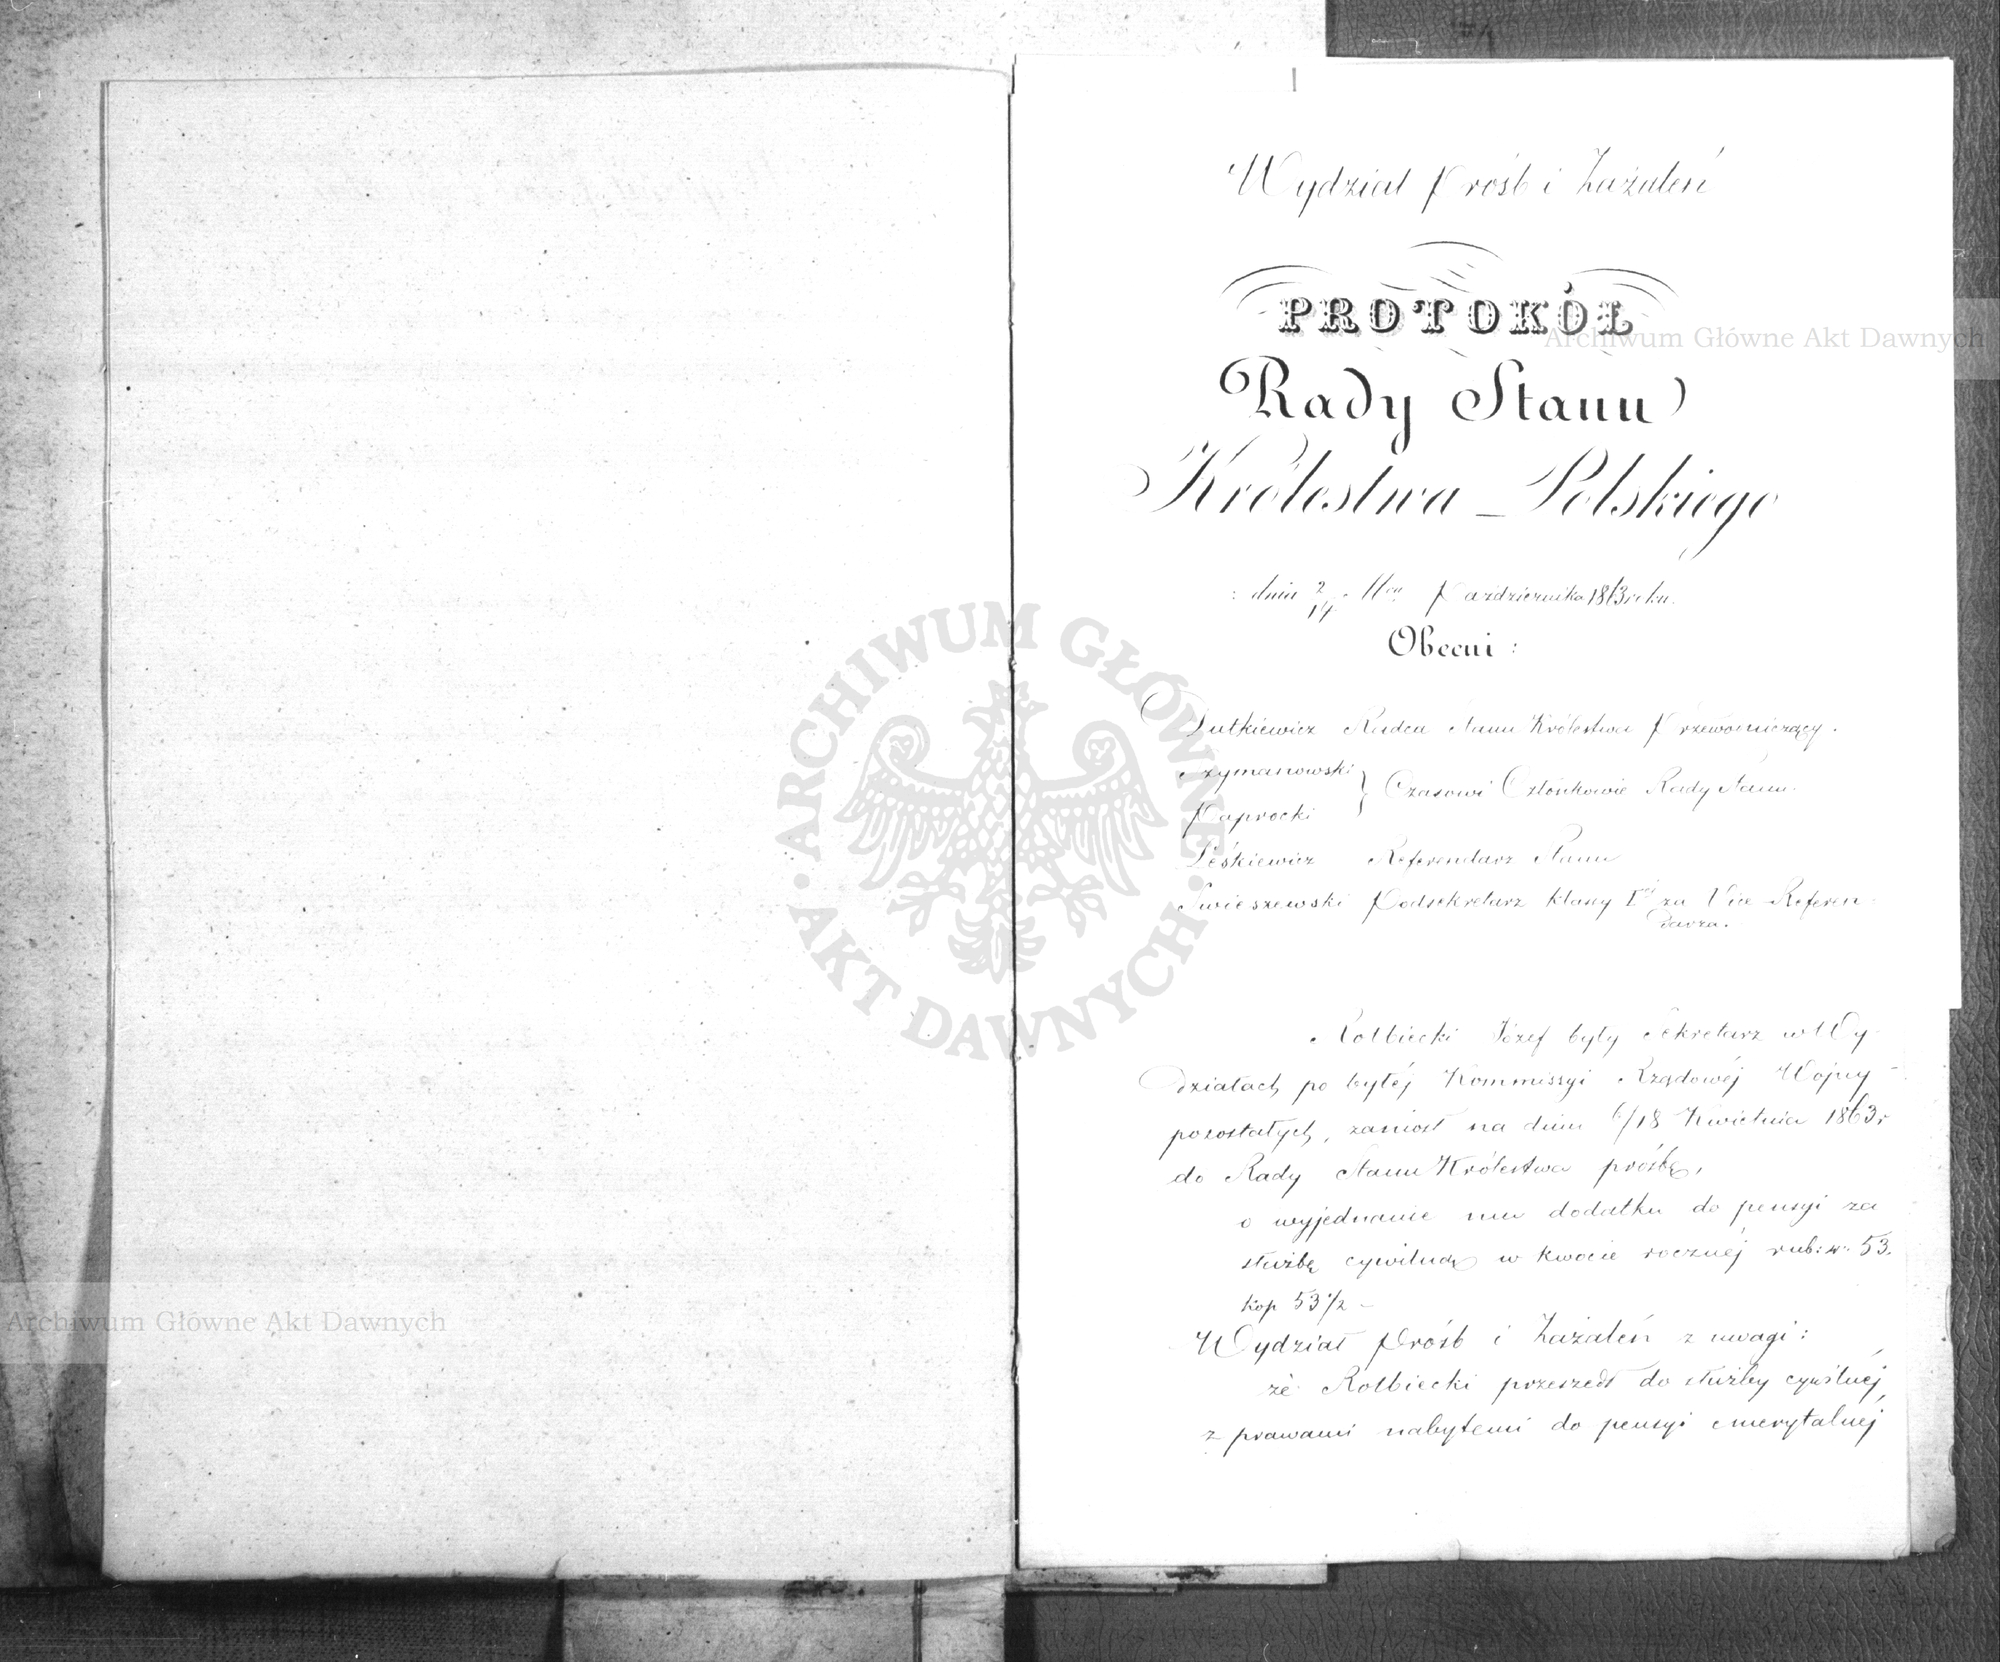 Wydział Próśb i Zażaleń
PROTOKÓŁ
Rady Stanu
Królestwa Polskiego
dnia 2/14 Października 1863 roku.
Obecni:
Dutkiewicz Radca Stanu Królestwa Przewodniczący.
Szymanowski
Paprocki } Czasowi Członkowie Rady Stanu.
Leśkiewicz Referendarz Stanu
Swieszewski Podsekretarz klassy I za Vice-Referen-
darza.
Kolbiecki Józef były Sekretarz w Wy-
działach po byłéj Kommissyi Rządowéj Wojny
pozostałych, zaniosł na dniu 6/18 Kwietnia 1863 r
do Rady Stanu Królestwa prośbę,
o wyjednanie mu dodatku do pensyi za
służbę cywilną w kwocie rocznéj rub: sr: 53.
kop 53 1/2 –
Wydział Próśb i Zażaleń z uwagi:
że Kolbiecki przeszedł do służby cywilnéj
z prawami nabytemi do pensyi emerytalnéj
Archiwum Główne Akt Dawnych
Archiwum Główne Akt Dawnych
ARCHIWUM GŁÓWNE · AKT DAWNYCH ·